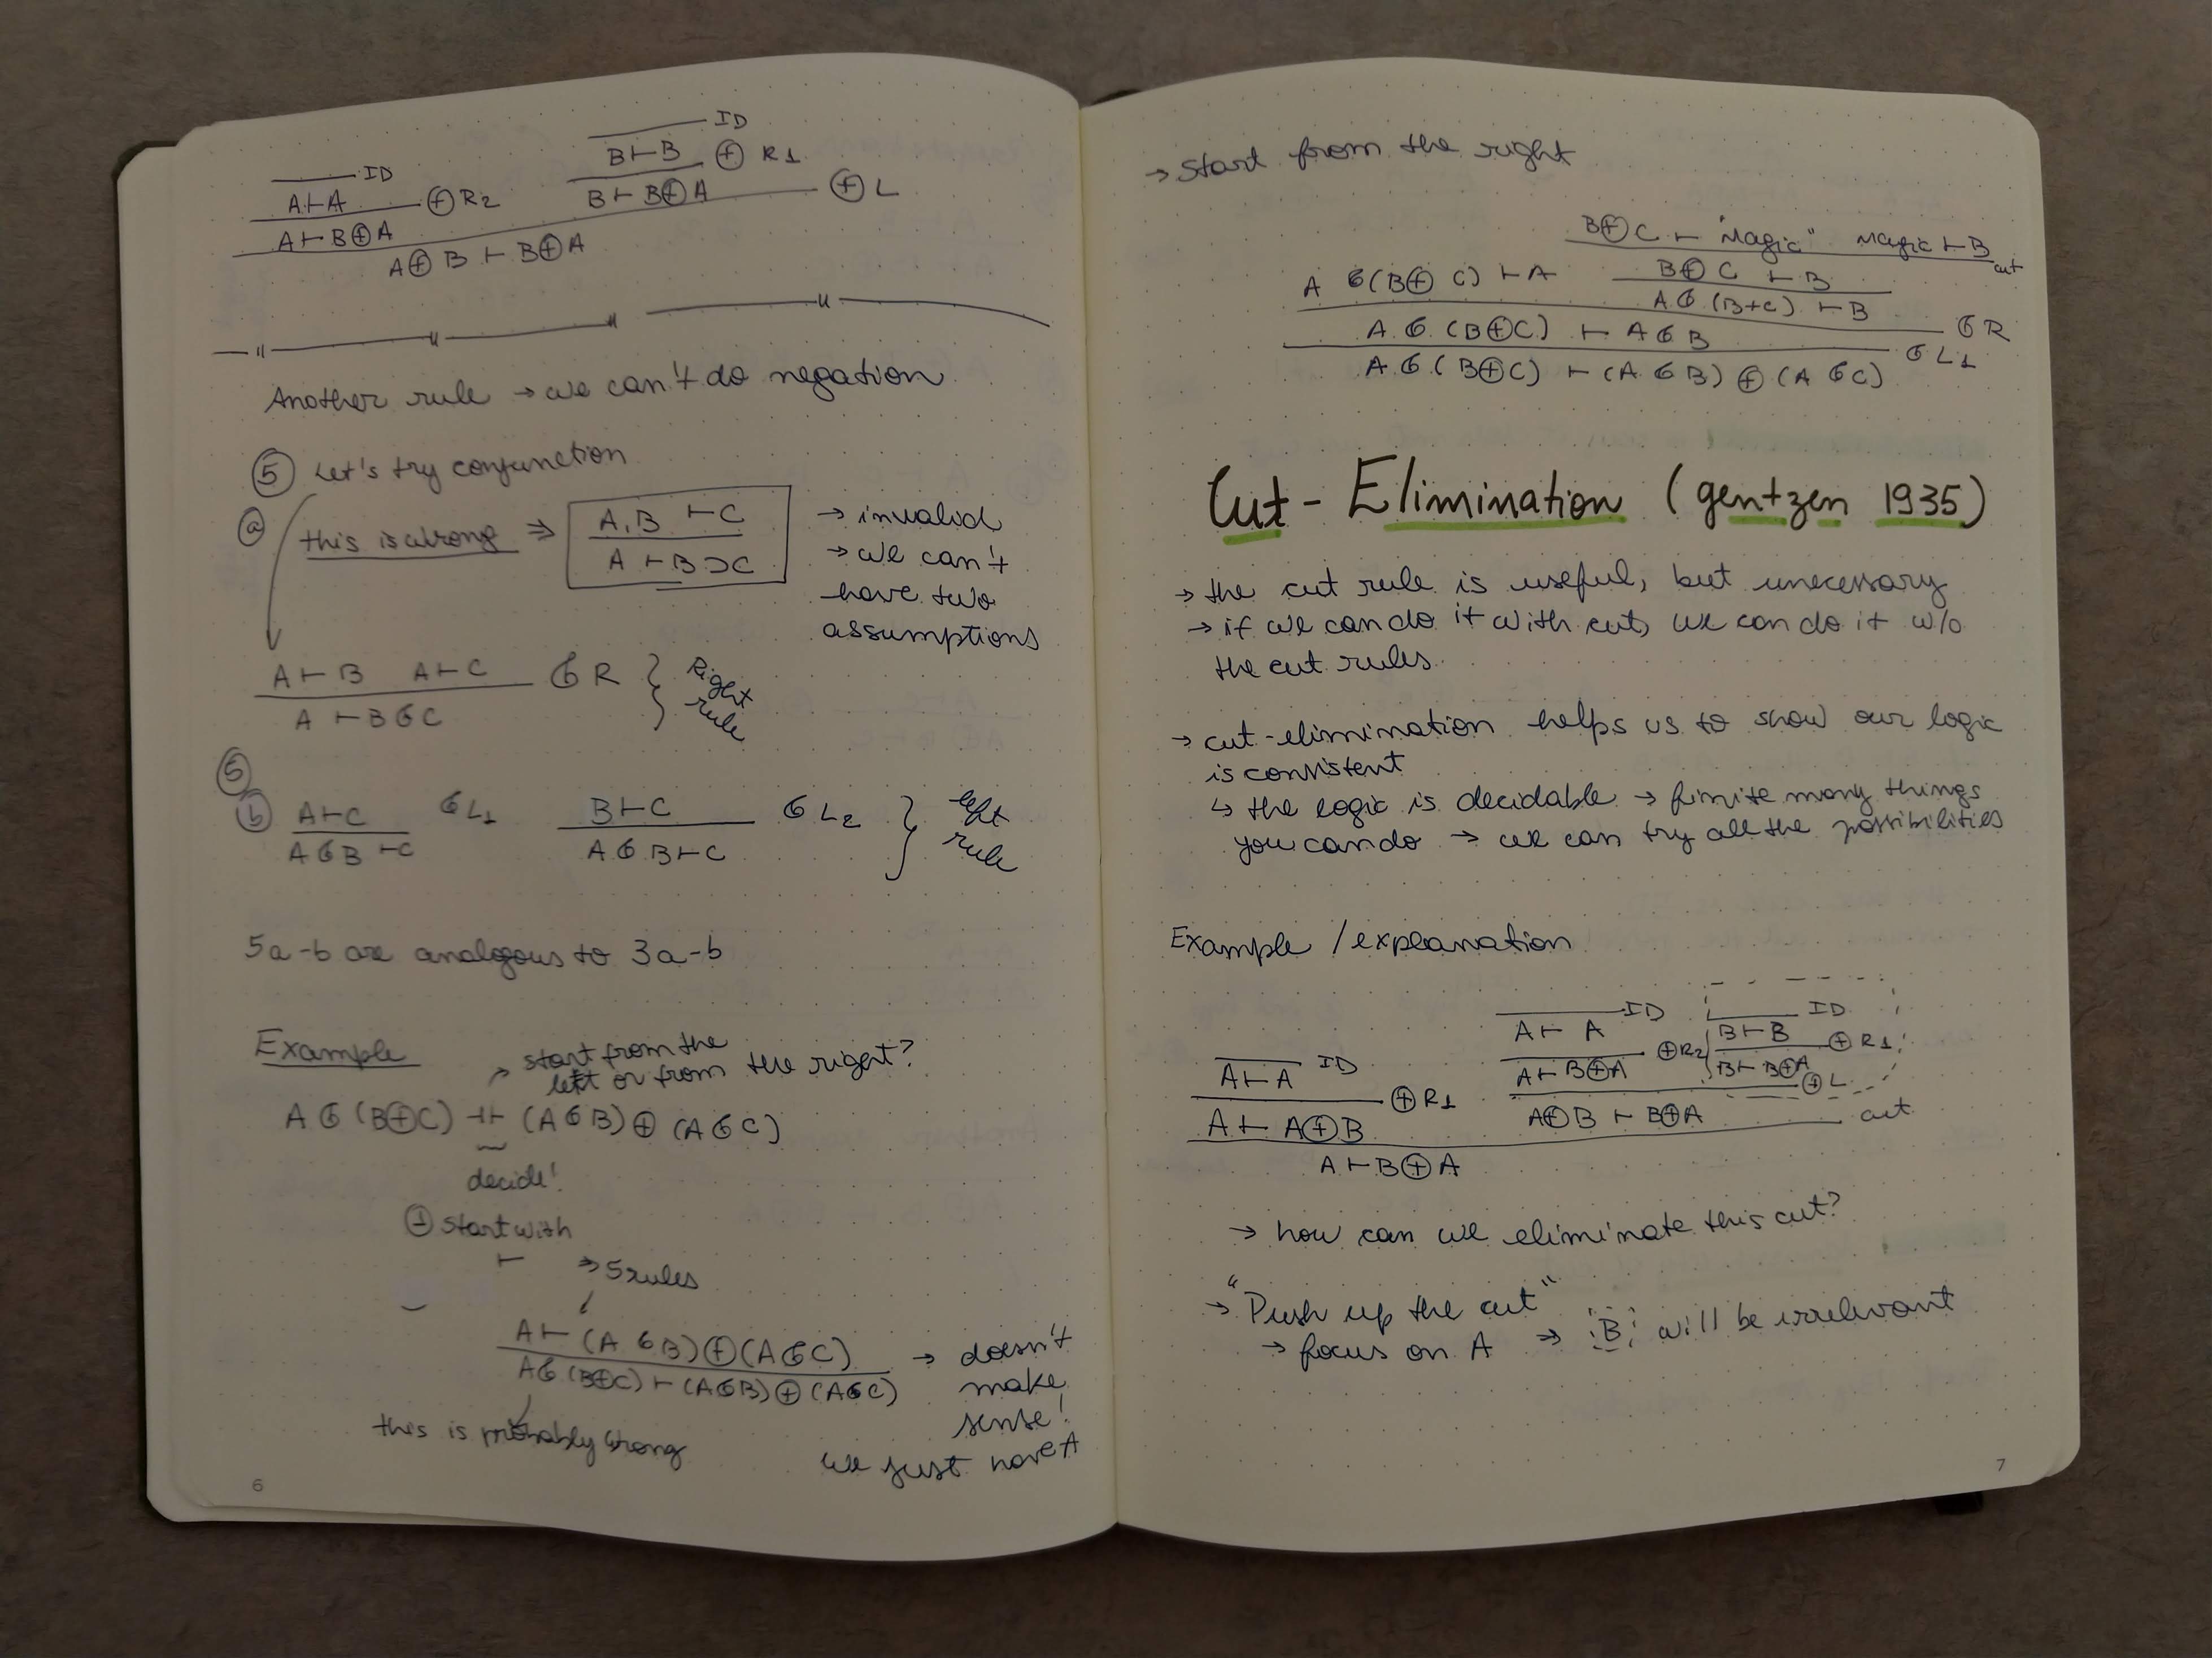 ID
ID
A⊢A ⊕R₂
B⊢B ⊕R₁
A⊢B⊕A
B⊢B⊕A ⊕L
A⊕B ⊢ B⊕A
— " — " — " —
Another rule → we can't do negation
⑤ Let's try conjunction
ⓐ this is wrong ⇒ A,B ⊢C → invalid
A ⊢B⊃C → we can't
have two
assumptions
A⊢B A⊢C & R } Right
A ⊢ B&C rule
⑤
ⓑ A⊢C &L₁ B⊢C &L₂ } left
A&B ⊢C A&B⊢C rule
5a-b are analogous to 3a-b
Example → start from the
left or from the right?
A&(B⊕C) ⊣⊢ (A&B)⊕(A&C)
decide!
① start with
⊢ ⇒ 5 rules
A⊢(A&B)⊕(A&C) → doesn't
A&(B⊕C)⊢(A&B)⊕(A&C) make
sense!
this is probably wrong we just have A
6
→ Start from the right
B⊕C ⊢ "Magic" Magic ⊢B cut
B⊕C ⊢B
A &(B⊕C) ⊢A A&(B+C) ⊢B &R
A&(B⊕C) ⊢ A&B &L₁
A&(B⊕C) ⊢ (A&B)⊕(A&C)
Cut-Elimination (gentzen 1935)
→ the cut rule is useful, but unecessary
→ if we can do it with cut, we can do it w/o
the cut rules.
→ cut-elimination helps us to show our logic
is consistent
↳ the logic is decidable → finite many things
you can do → we can try all the possibilities
Example / explanation
A⊢A ID B⊢B ID
A⊢A ID A⊢B⊕A ⊕R₂ B⊢B⊕A ⊕R₁
A⊢A⊕B ⊕R₁ A⊕B ⊢ B⊕A ⊕L
A⊢B⊕A cut
→ how can we eliminate this cut?
→ "Push up the cut"
→ focus on A → B will be irrelevant
7